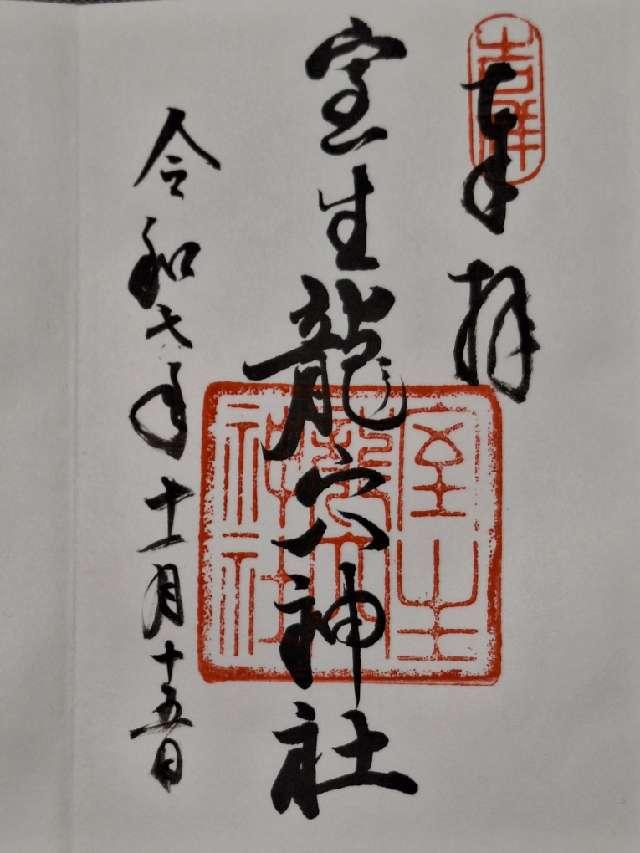 吉祥
奉拝
室生龍穴神社
室生龍穴神社
令和七年十一月十五日